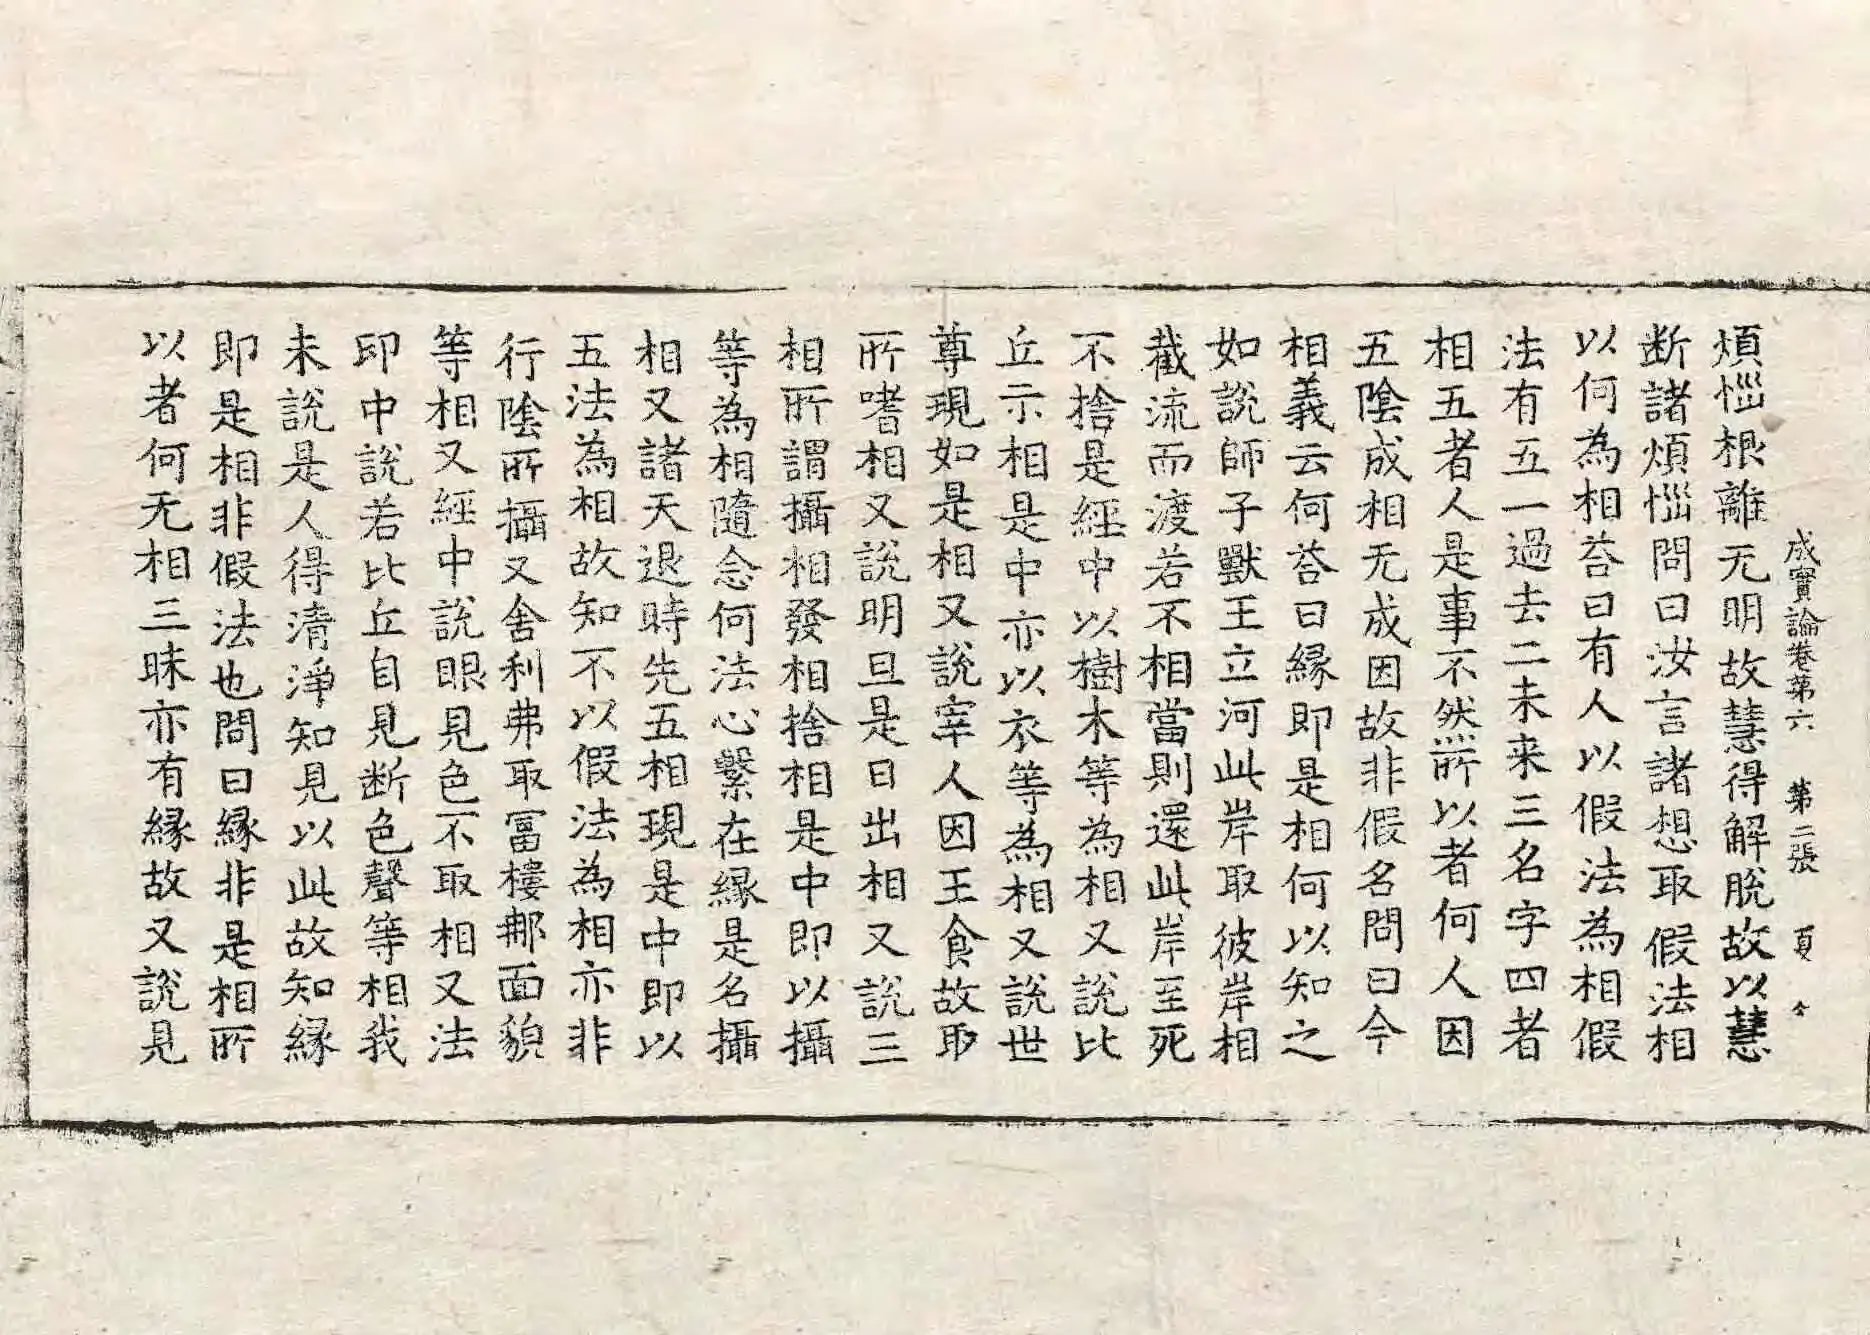 成實論卷第六 第二張 夏 今
煩惱根離无明故慧得解脫故以慧
断諸煩惱問曰汝言諸想取假法相
以何為相荅曰有人以假法為相假
法有五一過去二未来三名字四者
相五者人是事不然所以者何人因
五陰成相无成因故非假名問曰今
相義云何荅曰縁即是相何以知之
如說師子獸王立河此岸取彼岸相
截流而渡若不相當則還此岸至死
不捨是經中以樹木等為相又說比
丘示相是中亦以衣等為相又說世
尊現如是相又說宰人因王食故取
所嗜相又說明旦是日出相又說三
相所謂攝相發相捨相是中即以攝
等為相隨念何法心繫在縁是名攝
相又諸天退時先五相現是中即以
五法為相故知不以假法為相亦非
行陰所攝又舍利弗取冨樓那面貌
等相又經中說眼見色不取相又法
印中說若比丘自見断色聲等相我
未說是人得清淨知見以此故知縁
即是相非假法也問曰縁非是相所
以者何无相三昧亦有縁故又說見